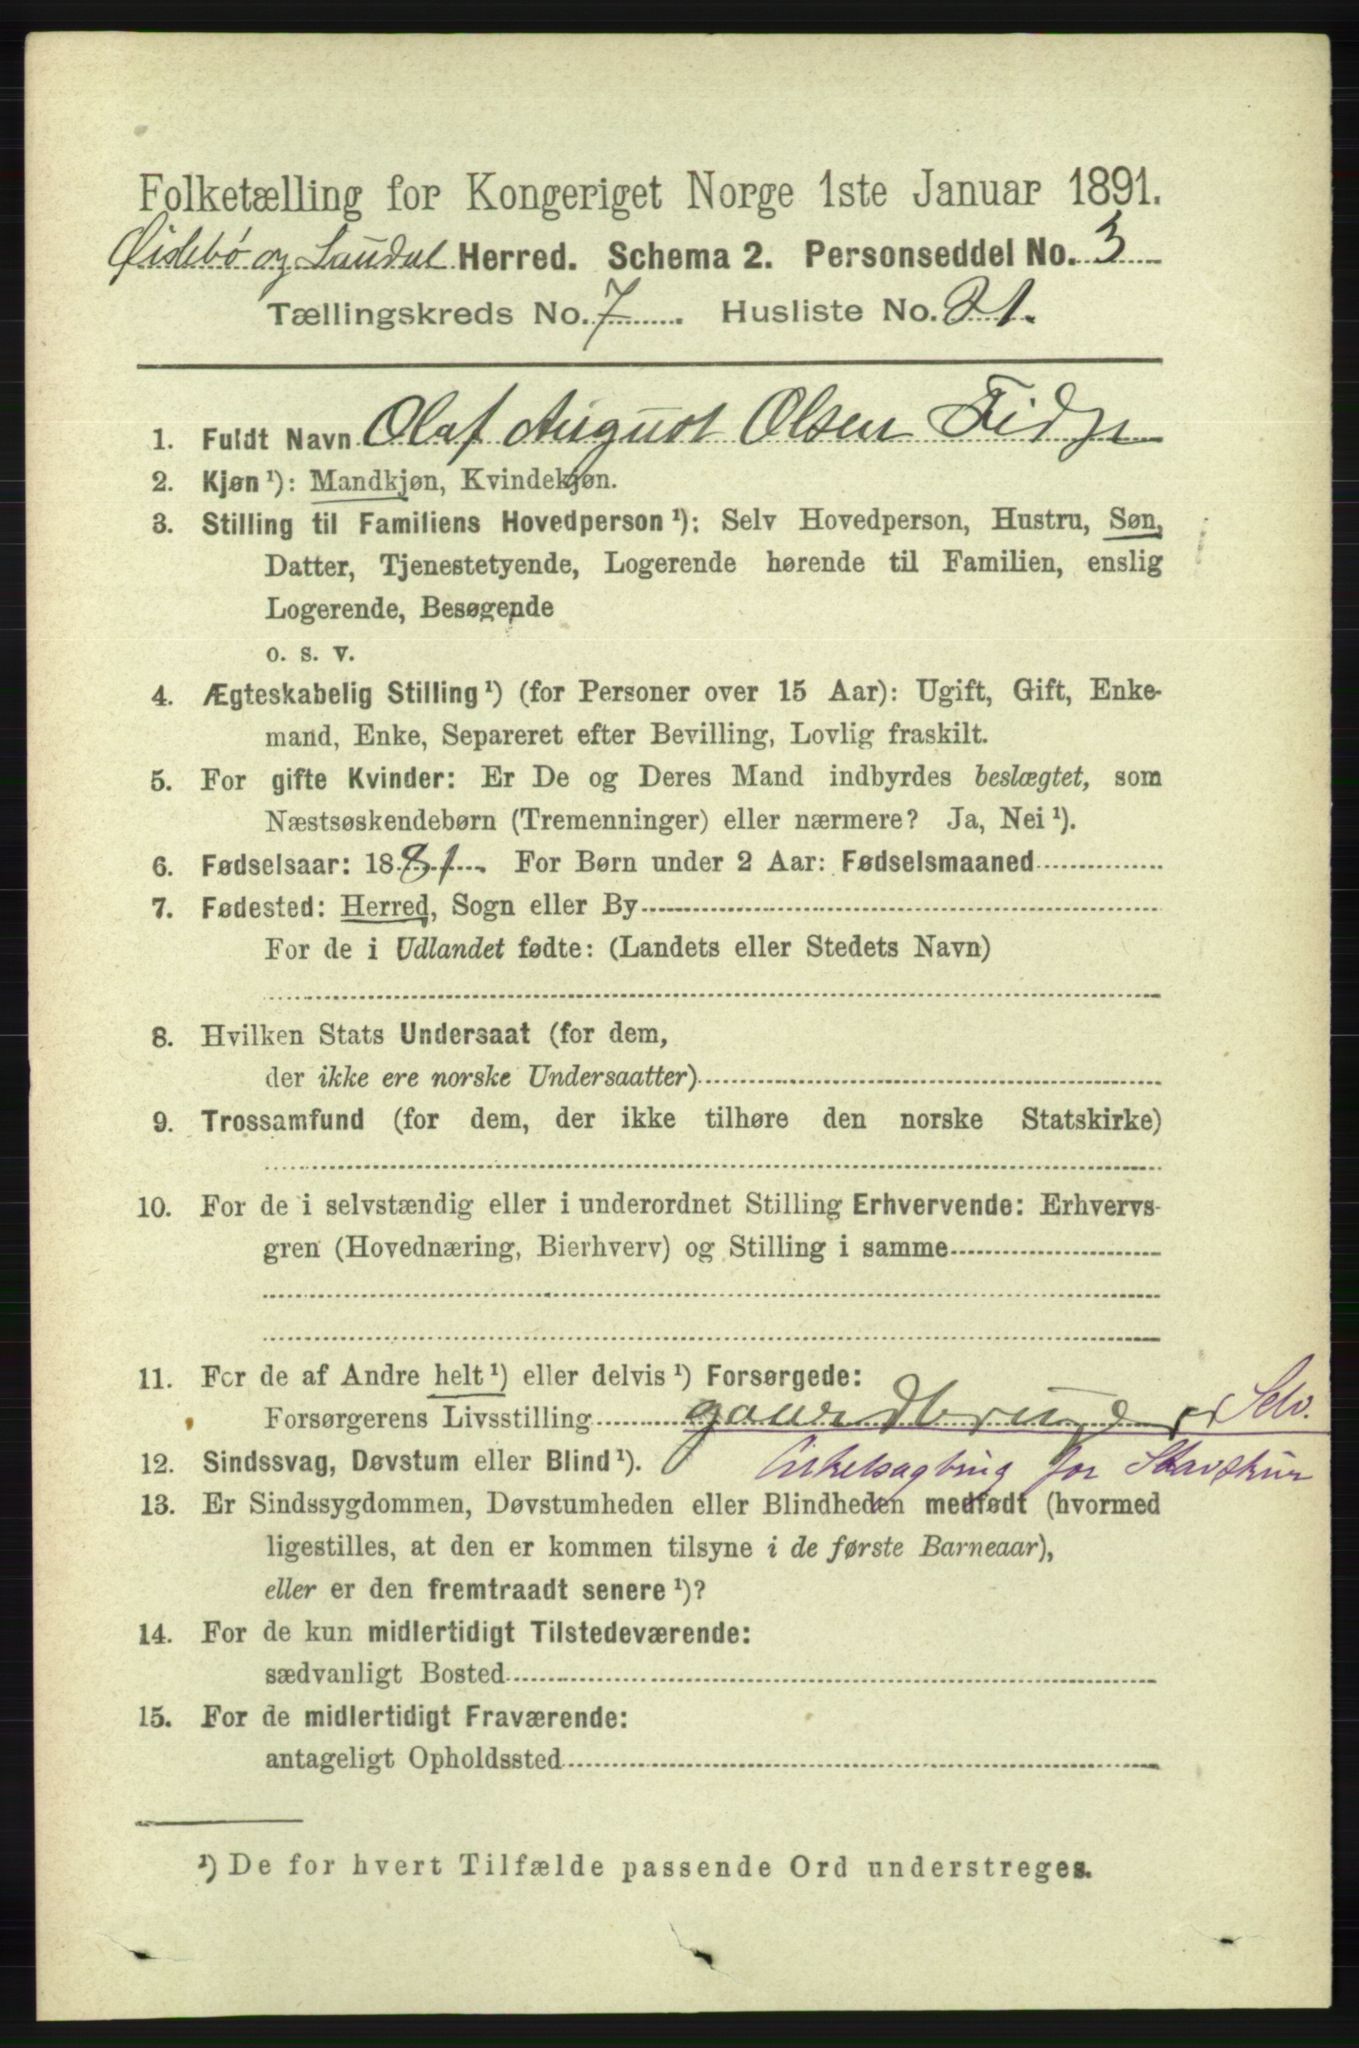 Folketælling for Kongeriget Norge 1ste Januar 1891.
Øislebø og Laudal Herred. Schema 2. Personseddel No. 3
Tællingskreds No. 7. Husliste No. 21.
1. Fuldt Navn Olaf August Olsen Fidje
2. Kjøn ¹): Mandkjøn, Kvindekjøn.
3. Stilling til Familiens Hovedperson ¹): Selv Hovedperson, Hustru, Søn,
Datter, Tjenestetyende, Logerende hørende til Familien, enslig
Logerende, Besøgende
o. s. v.
4. Ægteskabelig Stilling ¹) (for Personer over 15 Aar): Ugift, Gift, Enke-
mand, Enke, Separeret efter Bevilling, Lovlig fraskilt.
5. For gifte Kvinder: Er De og Deres Mand indbyrdes beslægtet, som
Næstsøskendebørn (Tremenninger) eller nærmere? Ja, Nei ¹).
6. Fødselsaar: 1881. For Børn under 2 Aar: Fødselsmaaned
7. Fødested: Herred, Sogn eller By
For de i Udlandet fødte: (Landets eller Stedets Navn)
8. Hvilken Stats Undersaat (for dem,
der ikke ere norske Undersaatter)
9. Trossamfund (for dem, der ikke tilhøre den norske Statskirke)
10. For de i selvstændig eller i underordnet Stilling Erhvervende: Erhvervs-
gren (Hovednæring, Bierhverv) og Stilling i samme
11. For de af Andre helt ¹) eller delvis ¹) Forsørgede:
Forsørgerens Livsstilling gaardbruger Selv.
12. Sindssvag, Døvstum eller Blind ¹). Cirkelsagbrug for
13. Er Sindssygdommen, Døvstumheden eller Blindheden medfødt (hvormed
ligestilles, at den er kommen tilsyne i de første Barneaar),
eller er den fremtraadt senere ¹)?
14. For de kun midlertidigt Tilstedeværende:
sædvanligt Bosted
15. For de midlertidigt Fraværende:
antageligt Opholdssted
¹) De for hvert Tilfælde passende Ord understreges.